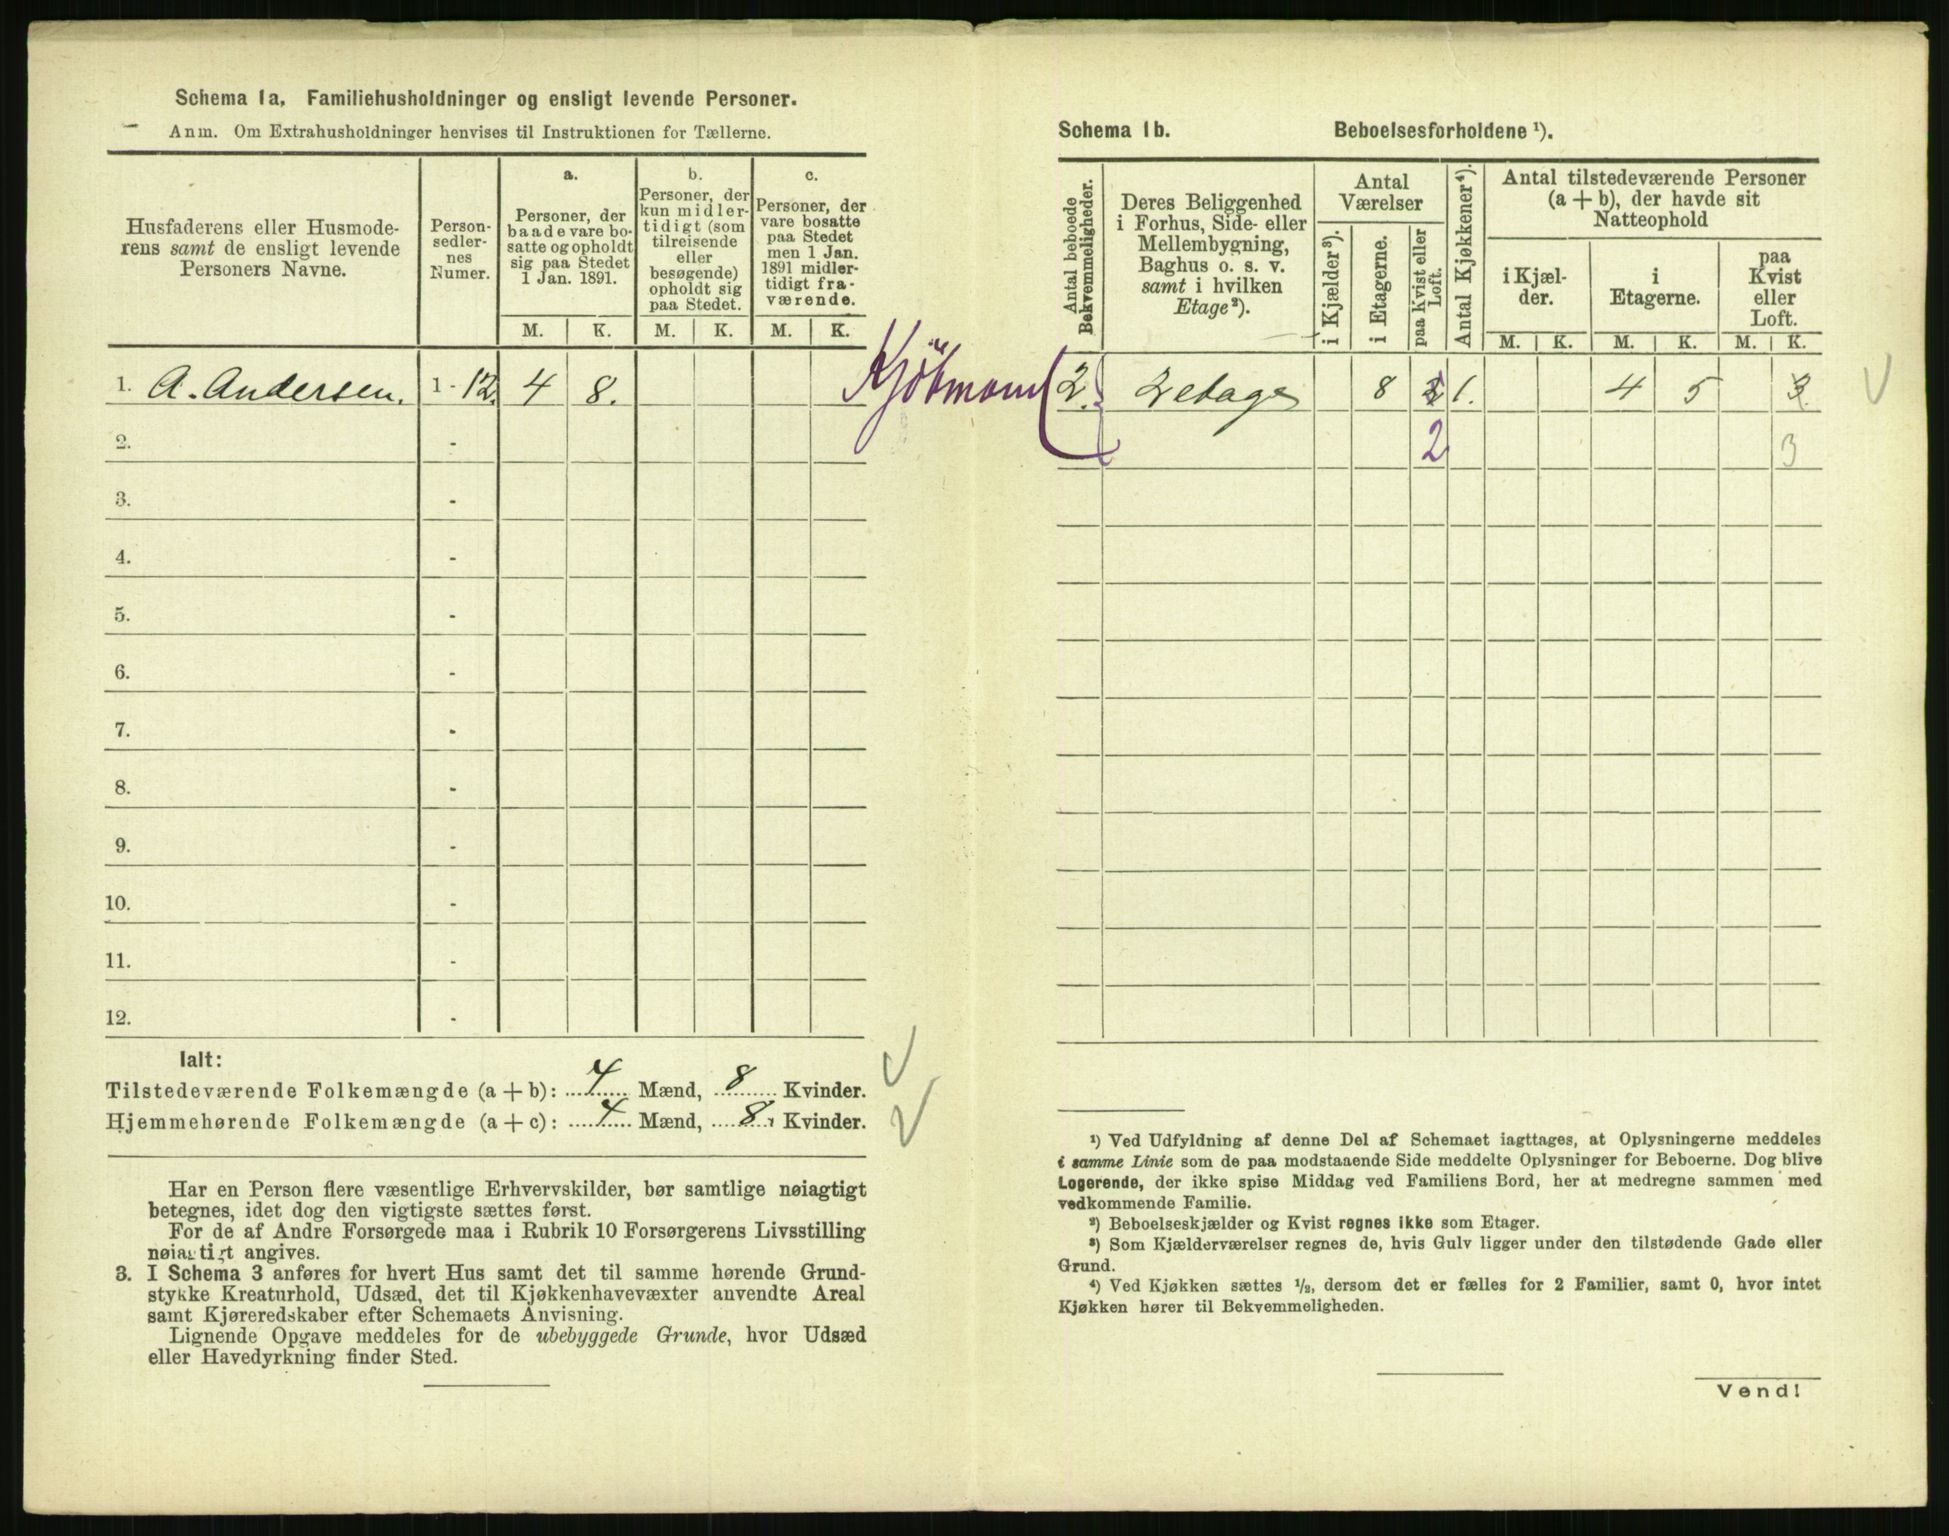 Schema 1a. Familiehusholdninger og ensligt levende Personer.
Anm. Om Extrahusholdninger henvises til Instruktionen for Tællerne.
Husfaderens eller Husmoderens samt de ensligt levende Personers Navne.
Personsedlernes Numer.
a. Personer, der baade vare bosatte og opholdt sig paa Stedet 1 Jan. 1891.
b. Personer, der kun midlertidigt (som tilreisende eller besøgende) opholdt sig paa Stedet.
c. Personer, der vare bosatte paa Stedet men 1 Jan. 1891 midlertidigt fraværende.
M. K. M. K. M. K.
1. A. Andersen. 1 - 12. 4 8.
Kjöbmann
2. -
3. -
4. -
5. -
6. -
7. -
8. -
9. -
10. -
11. -
12. -
Ialt:
Tilstedeværende Folkemængde (a + b): 4 Mænd, 8 Kvinder.
Hjemmehørende Folkemængde (a + c): 4 Mænd, 8 Kvinder.
Har en Person flere væsentlige Erhvervskilder, bør samtlige nøiagtigt
betegnes, idet dog den vigtigste sættes først.
For de af Andre Forsørgede maa i Rubrik 10 Forsørgerens Livsstilling
nøiagtigt angives.
3. I Schema 3 anføres for hvert Hus samt det til samme hørende Grund-
stykke Kreaturhold, Udsæd, det til Kjøkkenhavevæxter anvendte Areal
samt Kjøreredskaber efter Schemaets Anvisning.
Lignende Opgave meddeles for de ubebyggede Grunde, hvor Udsæd
eller Havedyrkning finder Sted.
Schema 1b. Beboelsesforholdene ¹).
Antal beboede Bekvemmeligheder.
Deres Beliggenhed i Forhus, Side- eller Mellembygning, Baghus o. s. v. samt i hvilken Etage²).
Antal Værelser
i Kjælder³).
i Etagerne.
paa Kvist eller Loft.
Antal Kjøkkener⁴).
Antal tilstedeværende Personer (a + b), der havde sit Natteophold
i Kjælder.
i Etagerne.
paa Kvist eller Loft.
M. K. M. K. M. K.
2. 2 etage 8 2 1. 4 5 3
2 3
¹) Ved Udfyldning af denne Del af Schemaet iagttages, at Oplysningerne meddeles
i samme Linie som de paa modstaaende Side meddelte Oplysninger for Beboerne. Dog blive
Logerende, der ikke spise Middag ved Familiens Bord, her at medregne sammen med
vedkommende Familie.
²) Beboelseskjælder og Kvist regnes ikke som Etager.
³) Som Kjælderværelser regnes de, hvis Gulv ligger under den tilstødende Gade eller
Grund.
⁴) Ved Kjøkken sættes ¹/₂, dersom det er fælles for 2 Familier, samt 0, hvor intet
Kjøkken hører til Bekvemmeligheden.
Vend!